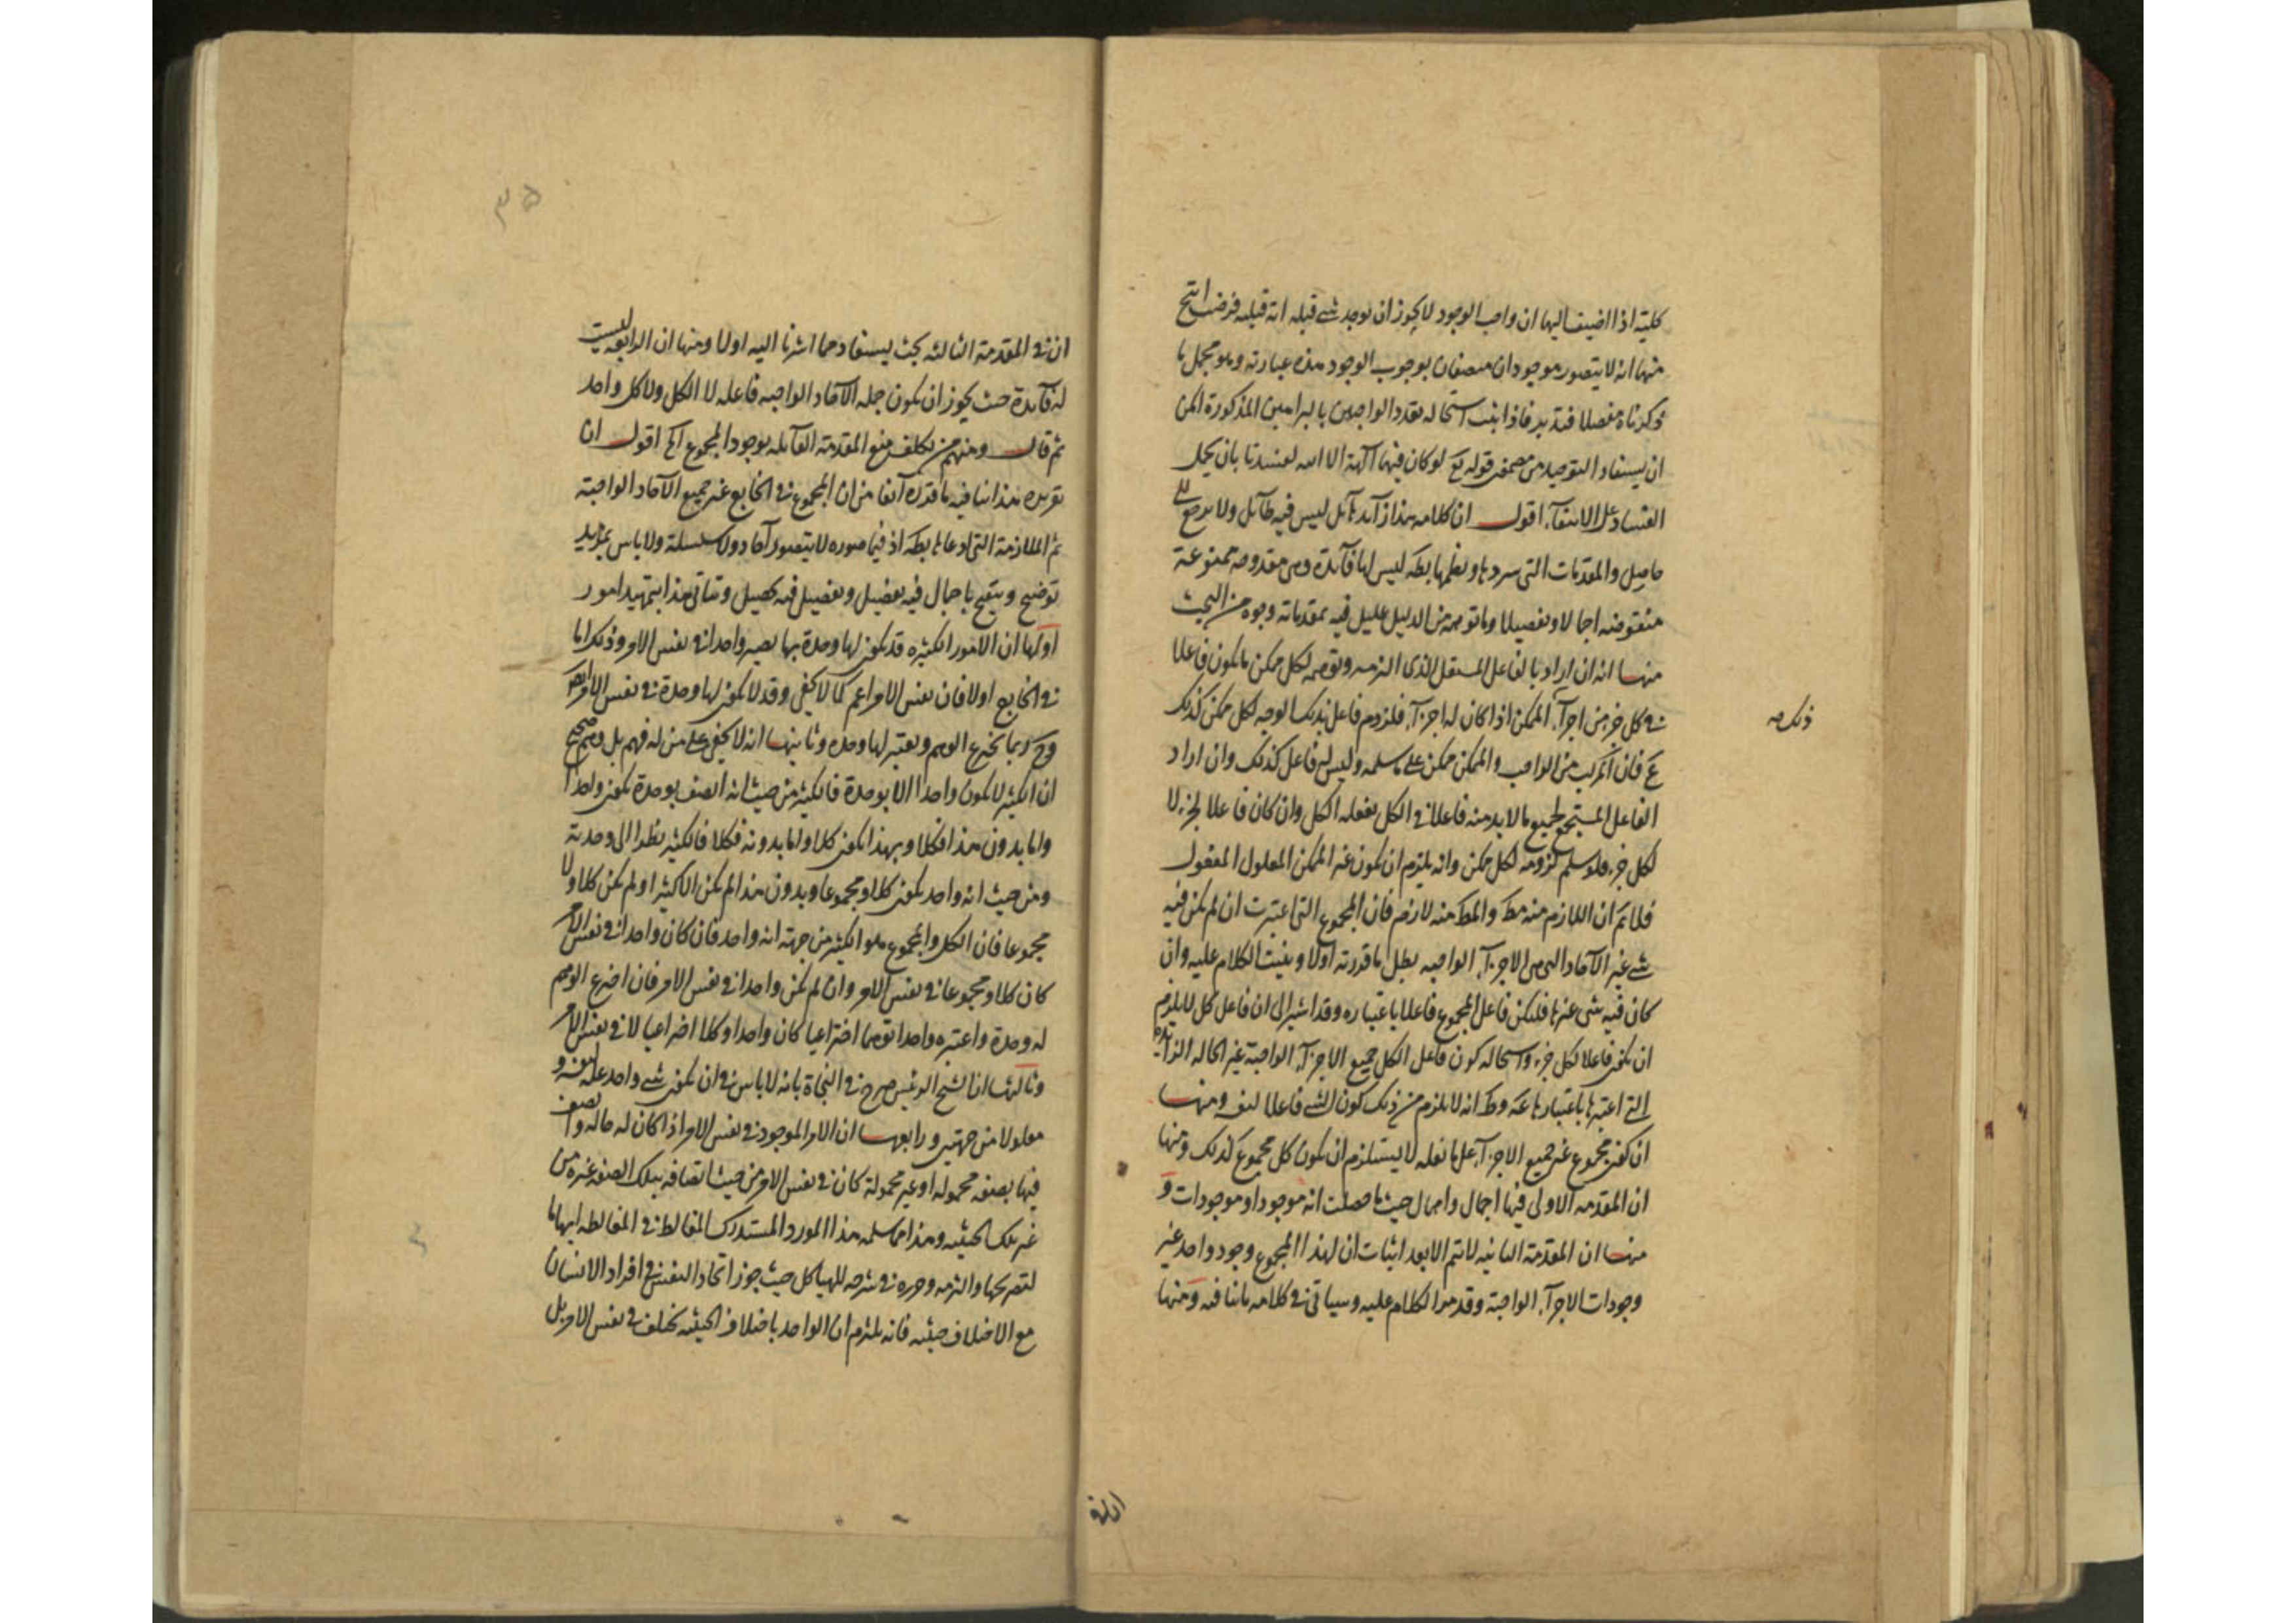 كلية اذا اضيف اليها ان واجب الوجود لا يجوز ان يوجد شے قبله انه قبله فرضت انتج
منها انه لا يتصور موجودان متصفان بوجوب الوجود هذه عبارته وهو مجمل ما
ذكرناه مفصلا فتدبر فاذا ثبت استحاله تعدد الواجبين بالبراهين المذكورة امكن
ان يستفاد التوحيد من قوله تع لو كان فيهما آلهة الا الله لفسدتا بان يحمل
الفساد على الانتفآء اقول ان كلامه هذا ليس فيه طآئل ولا يرجع الى
حاصل والمقدمات التى سردها ونظمها بطه ليس لها فآئدة وهى مقدوحة ممنوعة
منقوضه اجمالا وتفصيلا وما توهمه من الدليل عليل فيه بمقدماته وجوه من البحث
منها انه ان اراد بالفاعل المستقل الذى الزمه وتوهمه لكل ممكن ما يكون فاعلا
فى كل جزء من اجزآء الممكن اذا كان له اجزآء فلزوم فاعل بذلك الوجه لكل ممكن كذلك
مع فان المركب من الواجب والممكن ممكن على ما سلمه وليس له فاعل كذلك وان اراد
الفاعل المستجمع لجميع ما لا بد منه فاعلا فى الكل بفعله الكل وان كان فاعلا لجزء لا
لكل جزء فلو سلم لزومه لكل ممكن وانه يلزم ان يكون غير الممكن المعلول المفعول
فلا نم ان اللازم منه مطـ والمطـ منه لازم فان المجموع التى اعتبرت ان لم يكن فيه
شے غير الآحاد التى هى الاجزآء الواجبه بطل ما قررته اولا وبقيت الكلام عليه وان
كان فيه شى غيرها فليكن فاعل المجموع فاعلا باعتباره وقد اشير الى ان فاعل كل لا يلزم
ان يكون فاعلا لكل جزء واستحاله كون فاعل الكل جميع الاجزآء الواجبة غير الحاله الزآئدة
التى اعتبرها باعتبارها وظـ انه لا يلزم من ذلك كون الشے فاعلا لنفسه ومنها
ان كون مجموع غير جميع الاجزآء على ما نقله لا يستلزم ان يكون كل مجموع كذلك ومنها
ان المقدمه الاولى فيها اجمال واهمال حيث ما فصلت انه موجود او موجودات و
منها ان المقدمة الثانيه لا تتم الا بعد اثبات ان لهذا المجموع وجود واحد غير
وجودات الاجزآء الواجبة وقد مر الكلام عليه وسياتى فى كلامه ما ينافيه ومنها
ان فى المقدمة الثالثه بحث يستفاد مما اشرنا اليه اولا ومنها ان الرابعه ليست
له فآئدة حيث يجوز ان يكون جمله الآحاد الواجبه فاعله لا الكل ولا كل واحد
ثم قال ومنهم من تكلف منع المقدمة القآئله بوجود المجموع الخ اقول ان
تقريره هذا ينافيه ما قرره آنفا من ان المجموع فى الخارج غير جميع الآحاد الواجبة
ثم الملازمة التى ادعاها بطه اذ فيما صوره لا يتصور آحاد ولا سلسلة ولا باس بمزيد
توضيح وتنقيح باجمال فيه تفصيل وتفصيل فيه تحصيل ويتاتى هذا بتمهيد امور
اولها ان الامور الكثيره قد يكون لها وحدة بها يصير واحدا فى نفس الامر وذلك اما
فى الخارج اولا فان نفس الامر اعم كما لا يخفى وقد لا يكون لها وحدة فى نفس الامر
وح ربما يخترع الوهم ويعتبر لها وحده وثانيها انه لا يخفى على من له فهم بل وهم صحيح
ان الكثير لا يكون واحدا الا بوحدة فالكثير من حيث انه اتصف بوحدة يكون واحدا
واما بدون هذا فكلا وبهذا يكون كلا واما بدونه فكلا فالكثير نظرا الى وحدته
ومن حيث انه واحد يكون كلا ومجموعا وبدون هذا لم يكن الا كثيرا ولم يكن كلا ولا
مجموعا فان الكل والمجموع هو الكثير من جهته انه واحد فان كان واحدا فى نفس الامر
كان كلا ومجموعا فى نفس الامر وان لم يكن واحدا فى نفس الامر فان اخترع الوهم
له وحدة واعتبره واحدا توهما اختراعيا كان واحدا وكلا اختراعيا لا فى نفس الامر
وثالثها ان الشيخ الرئيس صرح فى النجاة بانه لا باس فى ان يكون شے واحد علة لنفسه و
معلولا من جهتين ورابعها ان الامر الموجود فى نفس الامر اذا كان له حاله واتصف
فيها بصفه محموله او غير محمولة كان فى نفس الامر من حيث اتصافه بتلك الصفة غيره من
غير تلك الحيثيه وهذا مما سلمه هذا المورد المستدرك المغالط فى المغالطه ايهاما
لتصريحها والتزمه وحرره فى شرحه للهياكل حيث جوز اتحاد النفس فى افراد الانسان
مع الاختلاف حيثيه فانه يلتزم ان الواحد باختلاف الحيثيه يختلف فى نفس الامر بل